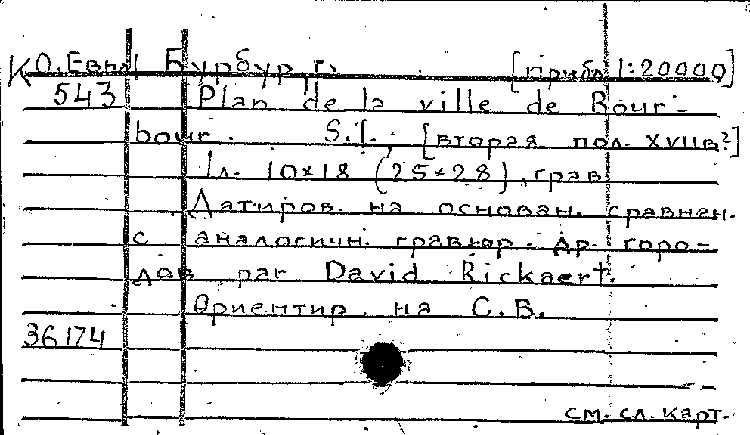 К О.Евр. Бурбург, г. [прибл. 1:20000]
543 Plan de la ville de Bour-
bour. S.l., [вторая пол. XVIIв?]
1л. 10×18 (25×28), грав.
Датиров. на основан. сравнен.
с аналогичн. гравюр. др. горо-
дов par David Rickaert.
Ориентир. на С.В.
36174
см. сл. карт.